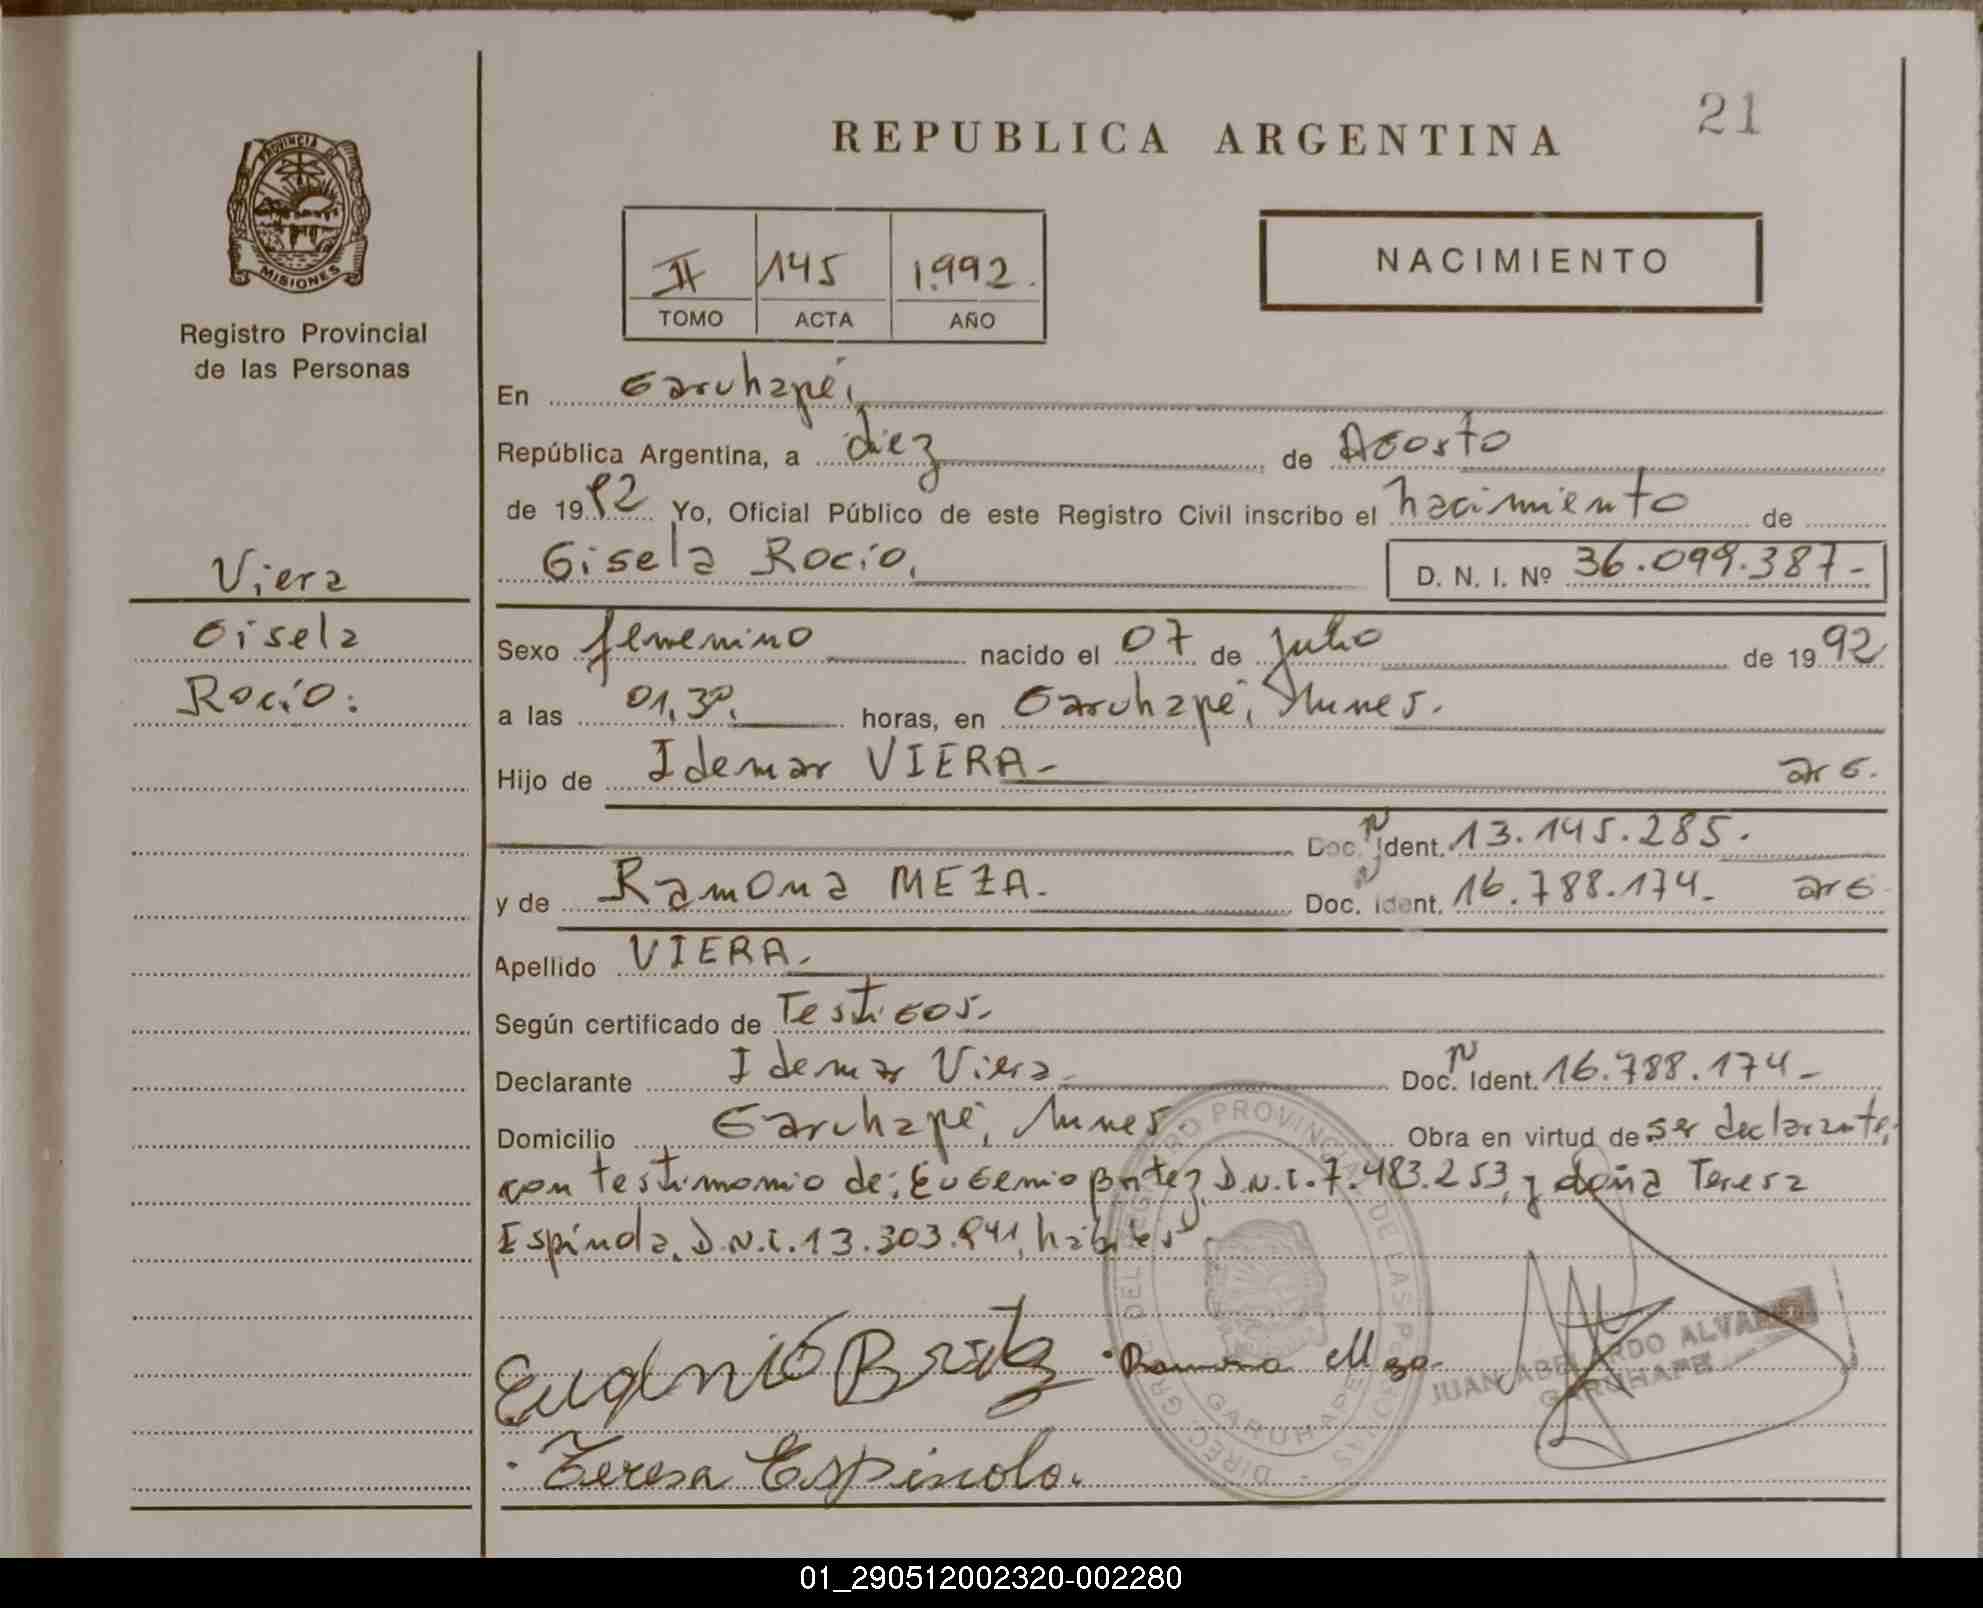 21
REPUBLICA ARGENTINA
PROVINCIA DE
MISIONES
Registro Provincial
de las Personas
II 145 1.992.
TOMO ACTA AÑO
NACIMIENTO
En Garuhapé,
República Argentina, a diez de Agosto
de 1992 Yo, Oficial Público de este Registro Civil inscribo el nacimiento de
Gisela Rocío, D. N. I. Nº 36.099.387-
Viera
Gisela
Rocío:
Sexo femenino nacido el 07 de Julio de 1992
a las 01,30, horas, en Garuhapé,
Hijo de Idemar VIERA- arg.
Doc. Ident. 13.145.285.
y de Ramona MEZA. Doc. Ident. 16.788.174- arg
Apellido VIERA.
Según certificado de Testigos.
Declarante Idemar Viera Doc. Ident. 16.788.174-
Domicilio Garuhapé, Obra en virtud de ser declarante,
con testimonio de: Eugenio Britez, D.N.I. 7.483.253, y doña Teresa
Espíndola, D.N.I. 13.303.841, hábiles
Eugenio Britez Ramona Meza
JUAN ABELARDO
GARUHAPE
DEL REGISTRO PROVINCIAL DE LAS PERSONAS
GARUHAPE
Teresa Espíndola.
01_290512002320-002280